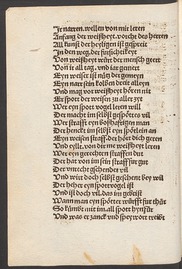 Ir narren, wellen von mir leren
Anfang der weißheyt, vorcht des herren
All kunst der heyligen ist gespreit
In den weg der fürsichtikeyt
Von weißheyt würt der mensch geert
Von ir all tag vnd iar gemert
Eyn wiser ist nütz der gemeyn
Eyn narr sein kolben dreit alleyn
Vnd mag vor weißheyt hören nit
Als spott der weisen zu aller zyt
Wer eyn spot vogel leren will
Der macht im selbst gespöttes vil
Wer strafft eyn boßhafftigen man
Der henckt im selbst eyn spötlein an
Eyn weisen straff der hört dich gern
Vnd eylt von dir me weißheyt lern
Wer eyn gerechten straffen dut
Der hat von im sein straff für gut
Der vngerecht schenden vil
Vnd würt doch selbst geschent bey wil
Der heher eyn spottvogel ist
Vnd ist doch vil das im gebrist
Wann man eyn spötter würfft für thür
So kumbt mit im all spott hynfür
Vnd was er zanck vnd spey wort treibt